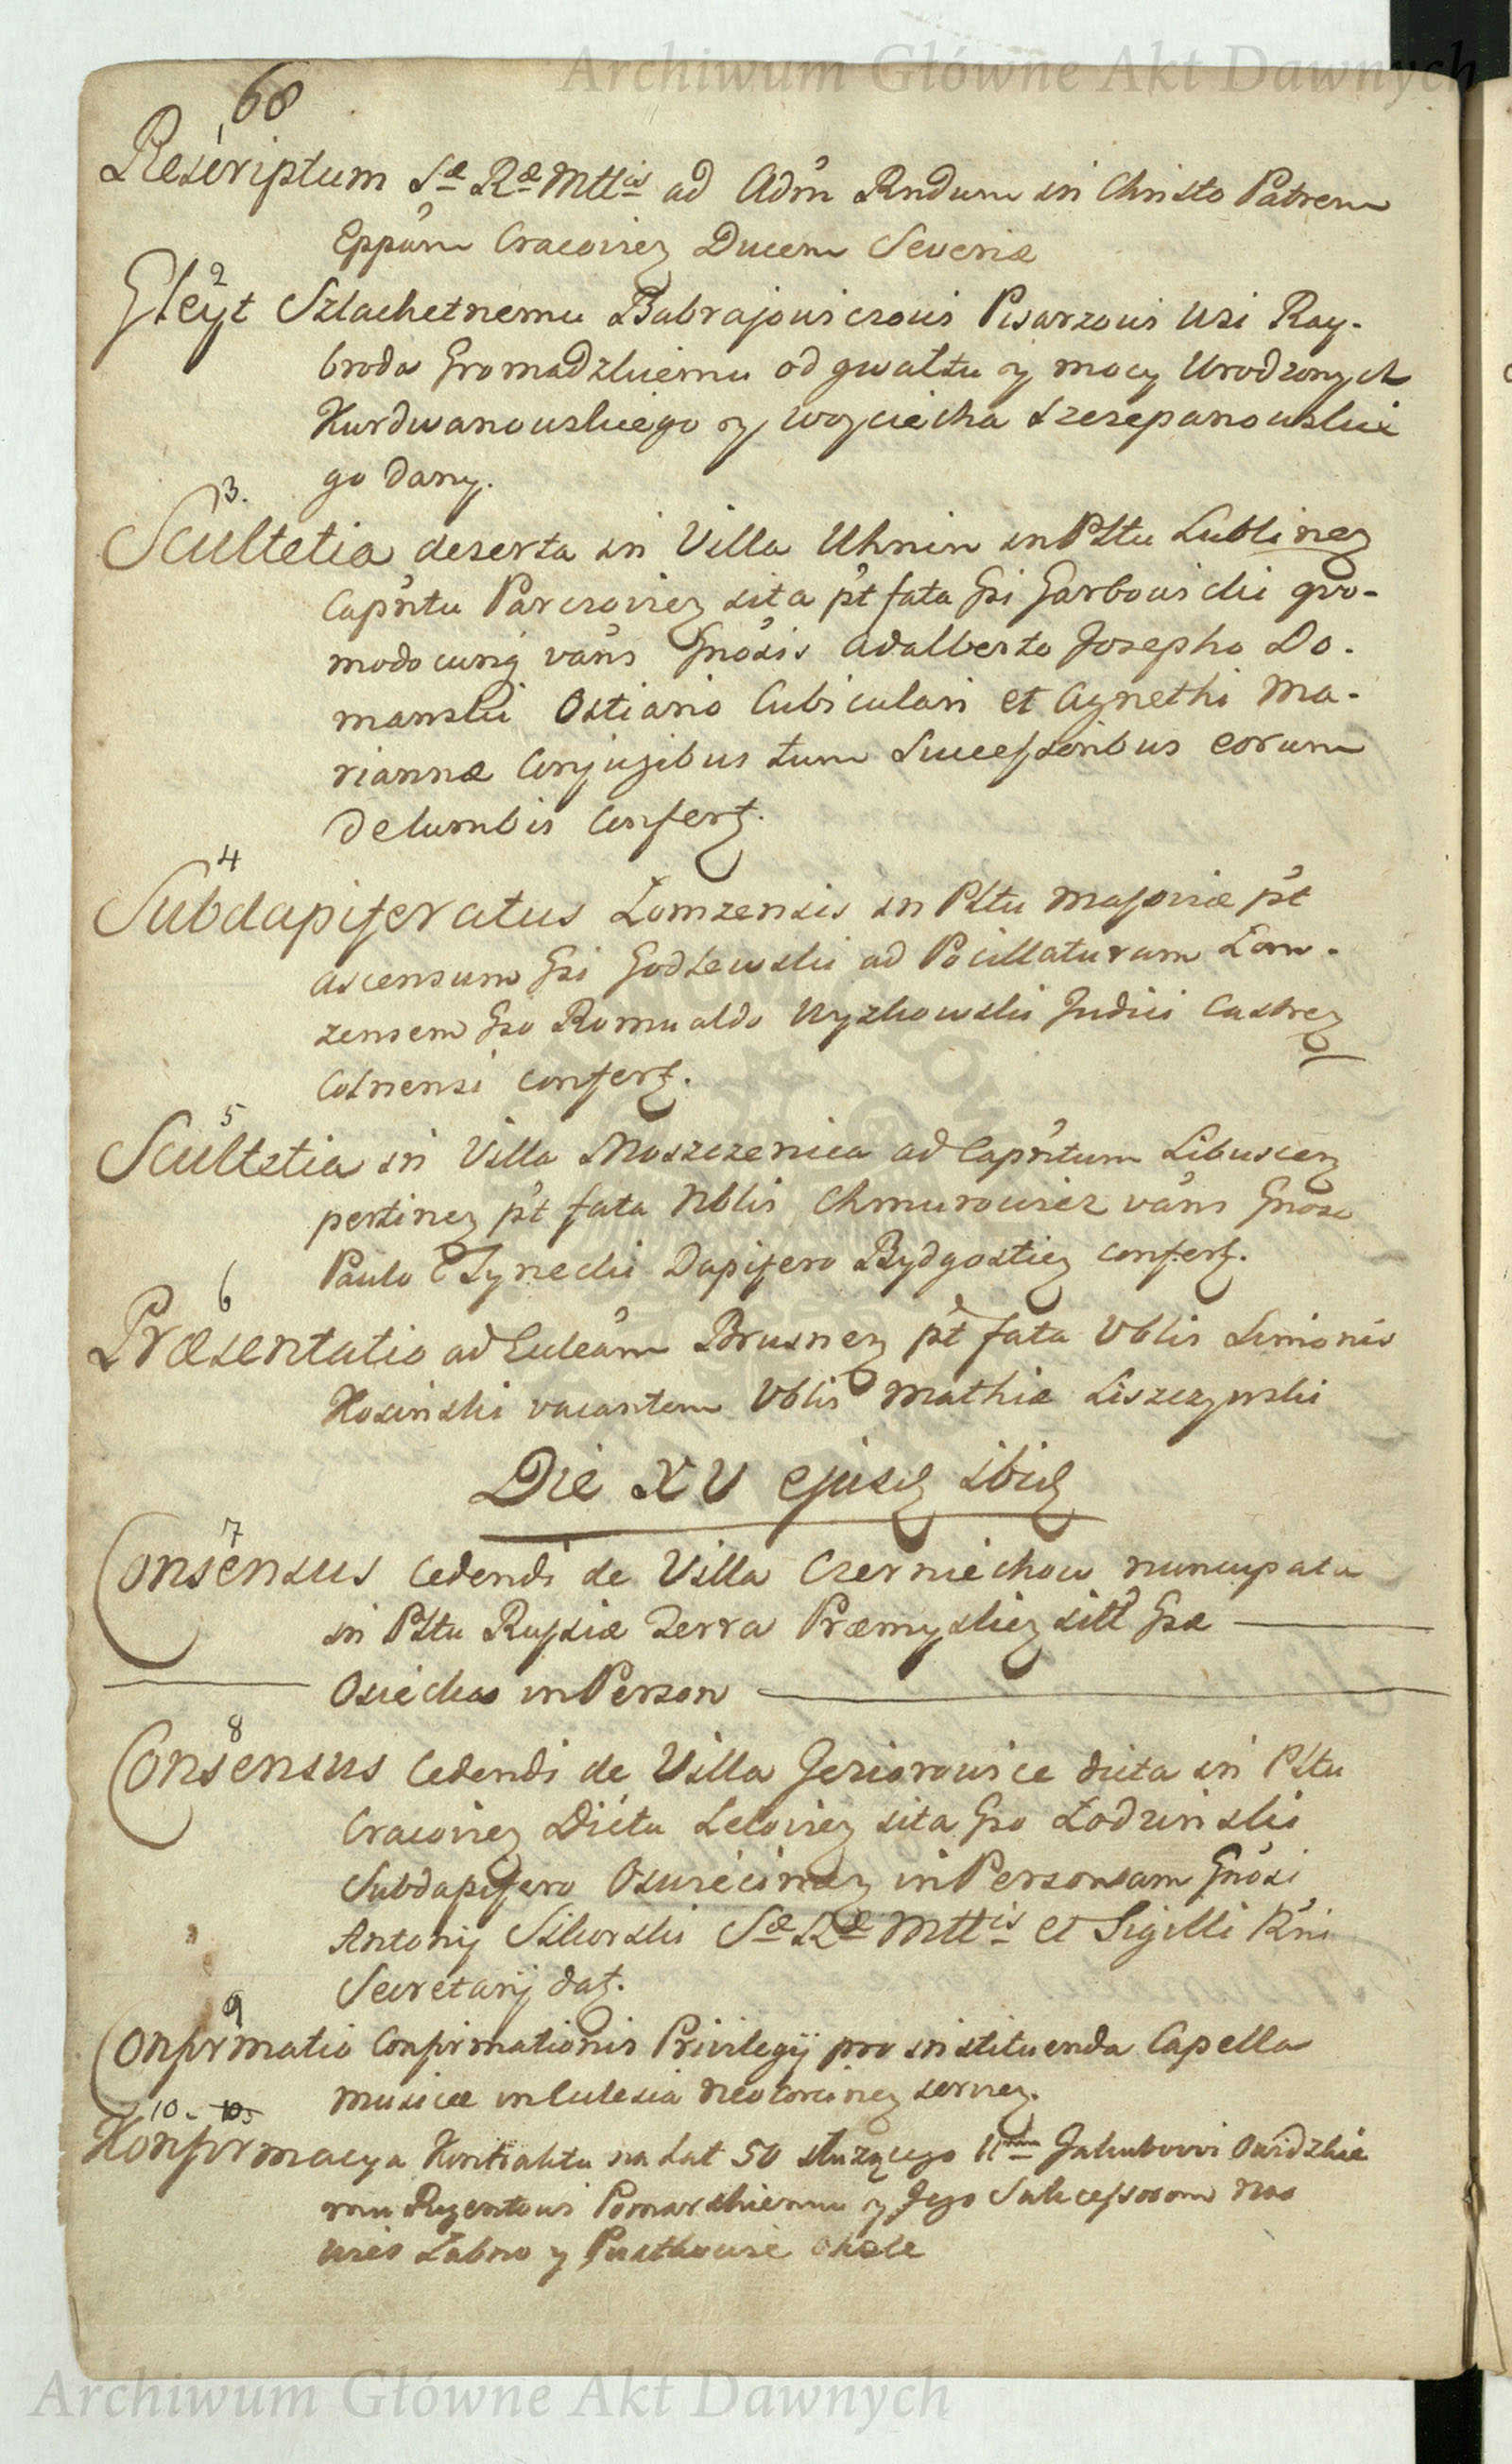 Archiwum Główne Akt Dawnych
68
1
Rescriptum Sæ Ræ Mttis ad Adm Rndum in Christo Patrem
Eppum Cracovien Ducem Severiæ
2
Gleyt Szlachetnemu Babrajowiczowi Pisarzowi Wsi Ray-
broda Gromadzkiemu od gwałtu y mocy Urodzonych
Kurdwanowskiego y Woyciecha Szczepanowskie
go dany.
3.
Scultetia deserta in Villa Uhnin in Pltu Lublinen
Capntu Parczovien sita pt fata Gsi Garbowicki quo-
modocunq vans Gnosis Adalberto Josepho Do-
manski Ostiario Cubiculari et Agnethi Ma-
riannæ Conjugibus tum Successoribus eorum
delumbis Confert.
4
Subdapiferatus Łomzensis in Pltu Masoviæ pt
ascensum Gsi Godlewski ad Pocillaturam Łom-
zensem Gso Romualdo Wyzkowski Judici Castren
Colnensi confert.
5
Scultetia in Villa Moszczenica ad Capntum Libuscen
pertinen pt fata Nblis Chmurowicz vans Gnoso
Paulo Tynecki Dapifero Bydgostien confert.
6
Præsentatio ad Ecleam Brusnen pt fata Vblis Simonis
Kosinski vacantem Vblis Mathiæ Liszczynski
Die XV ejusd ibid
7
Consensus Cedendi de Villa Czerniechow nuncupata
in Pltu Russiæ Terra Præmyslien sitt Gsæ
Osiecka in Person
8
Consensus Cedendi de Villa Jeziorowice dicta in Pltu
Cracovien Dictu Lelovien sita Gso Łodzinski
Subdapifero Oswiecimen in Personam Gnosi
Antonij Sikorski Sæ Ræ Mttis et Sigilli Rni
Secretarij dat.
9
Confirmatio Confirmationis Privilegij pro instituenda Capella
Musicæ in Eclesia Neocorcinen servien.
10. 10
Konfirmacya Kontraktu na Lat 50 służącego Urm Jakubowi Owidzkie
mu Rejentowi Pomorskiemu y Jego Sukcessorom na
Wies Łabno y Pustkowie Okole
Archiwum Główne Akt Dawnych